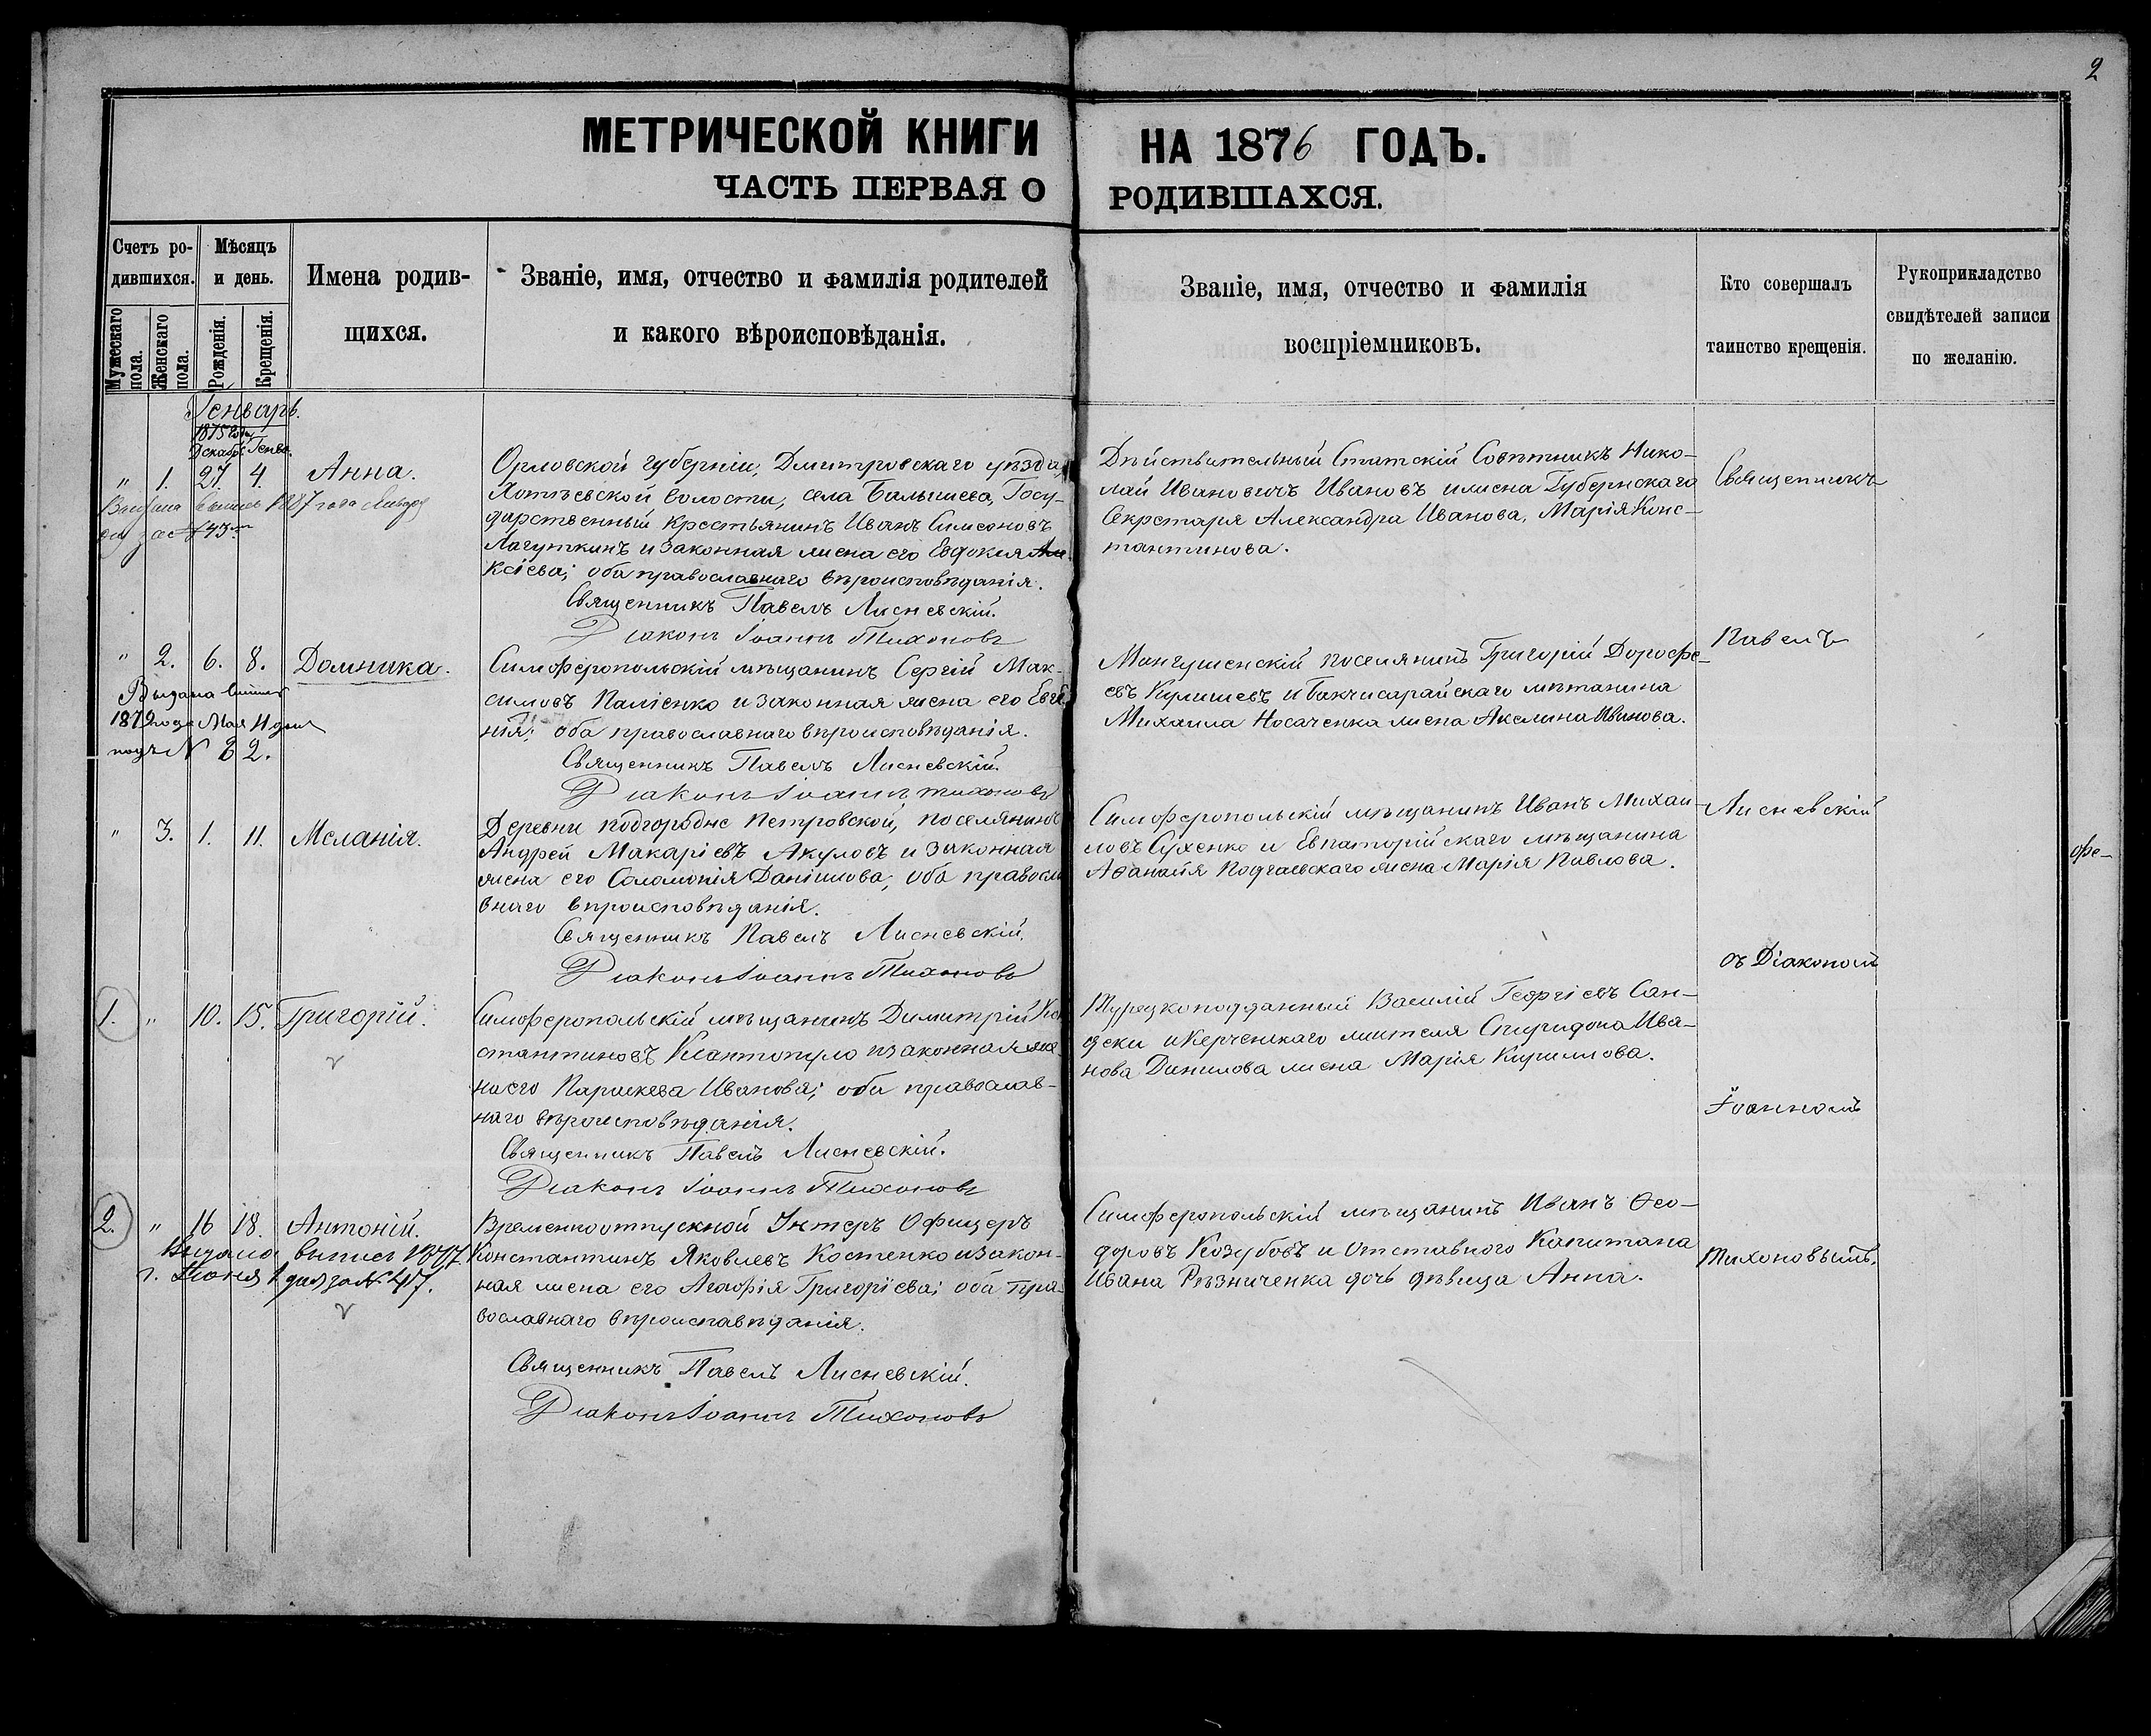 2
МЕТРИЧЕСКОЙ КНИГИ НА 1876 ГОДЪ.
ЧАСТЬ ПЕРВАЯ О РОДИВШАХСЯ.
Счетъ ро-
дившихся.
Мужескаго
пола.
Женскаго
пола.
Мѣсяцъ
и день.
Рожденія.
Крещенія.
Имена родив-
щихся.
Званіе, имя, отчество и фамилія родителей
и какого вѣроисповѣданія.
Званіе, имя, отчество и фамилія
воспріемниковъ.
Кто совершалъ
таинство крещенія.
Рукоприкладство
свидѣтелей записи
по желанію.
Генварь.
1875 года
Декабр. Генва.
" 1. 27. 4. Анна.
года
за № 43
Орловской губерніи, Дмитровскаго уѣзда,
Хотьевской волости, села Балышева, Госу-
дарственный крестьянинъ Иванъ Симеоновъ
Лагуткинъ и законная жена его Евдокія Але
ксіева; оба православнаго вѣроисповѣданія.
Священникъ Павелъ Лисневскій.
Діаконъ Іоаннъ Тихоновъ
Дѣйствительный Статскій Совѣтникъ Нико-
лай Ивановичъ Ивановъ и жена Губернскаго
Секретаря Александра Иванова, Марія Конс-
тантинова.
Священникъ
" 2. 6. 8. Домника.
Выдана
года Мая 11 дня
подъ № 82.
Симферопольскій мѣщанинъ Сергій Мак-
симовъ Паліенко и законная жена его Евге
нія; оба православнаго вѣроисповѣданія.
Священникъ Павелъ Лисневскій.
Діаконъ Іоаннъ Тихоновъ
Мангушенскій поселянинъ Григорій Дорофе-
евъ Кулишевъ и Бакчисарайскаго мѣщанина
Михаила Носаченка жена Акелина Иванова.
Павелъ
" 3. 1. 11. Меланія.
Деревни подгородне Петровской, поселянинъ
Андрей Макаріевъ Акуловъ и законная
жена его Соломонія Даніилова; оба правосла
внаго вѣроисповѣданія.
Священникъ Павелъ Лисневскій.
Діаконъ Іоаннъ Тихоновъ
Симферопольскій мѣщанинъ Иванъ Михаи-
ловъ Сухенко и Евпаторійскаго мѣщанина
Аѳанасія Подгаевскаго жена Марія Павлова.
Лисневскій
офе-
съ Діакономъ
1. " 10. 15. Григорій.
Симферопольскій мѣщанинъ Димитрій Кон
стантиновъ Ксантопуло и законная же
на его Параскева Иванова; оба православ-
наго вѣроисповѣданія.
Священникъ Павелъ Лисневскій.
Діаконъ Іоаннъ Тихоновъ
Турецкоподданный Василій Георгіевъ Сан-
и Керченскаго жителя Спиридона Ива-
нова Данилова жена Марія Кириллова.
Іоанномъ
2. " 16 18. Антоній.
Выдана выпись 1877
г. Іюня 1 дня за № 417.
Временноотпускной Унтеръ Офицеръ
Константинъ Яковлевъ Костенко и закон-
ная жена его Агафія Григоріева; оба пра-
вославнаго вѣроисповѣданія.
Священникъ Павелъ Лисневскій.
Діаконъ Іоаннъ Тихоновъ
Симферопольскій мѣщанинъ Иванъ Ѳео-
доровъ Козубовъ и Отставного Капитана
Ивана Рѣзниченка дочь дѣвица Анна.
Тихоновымъ.